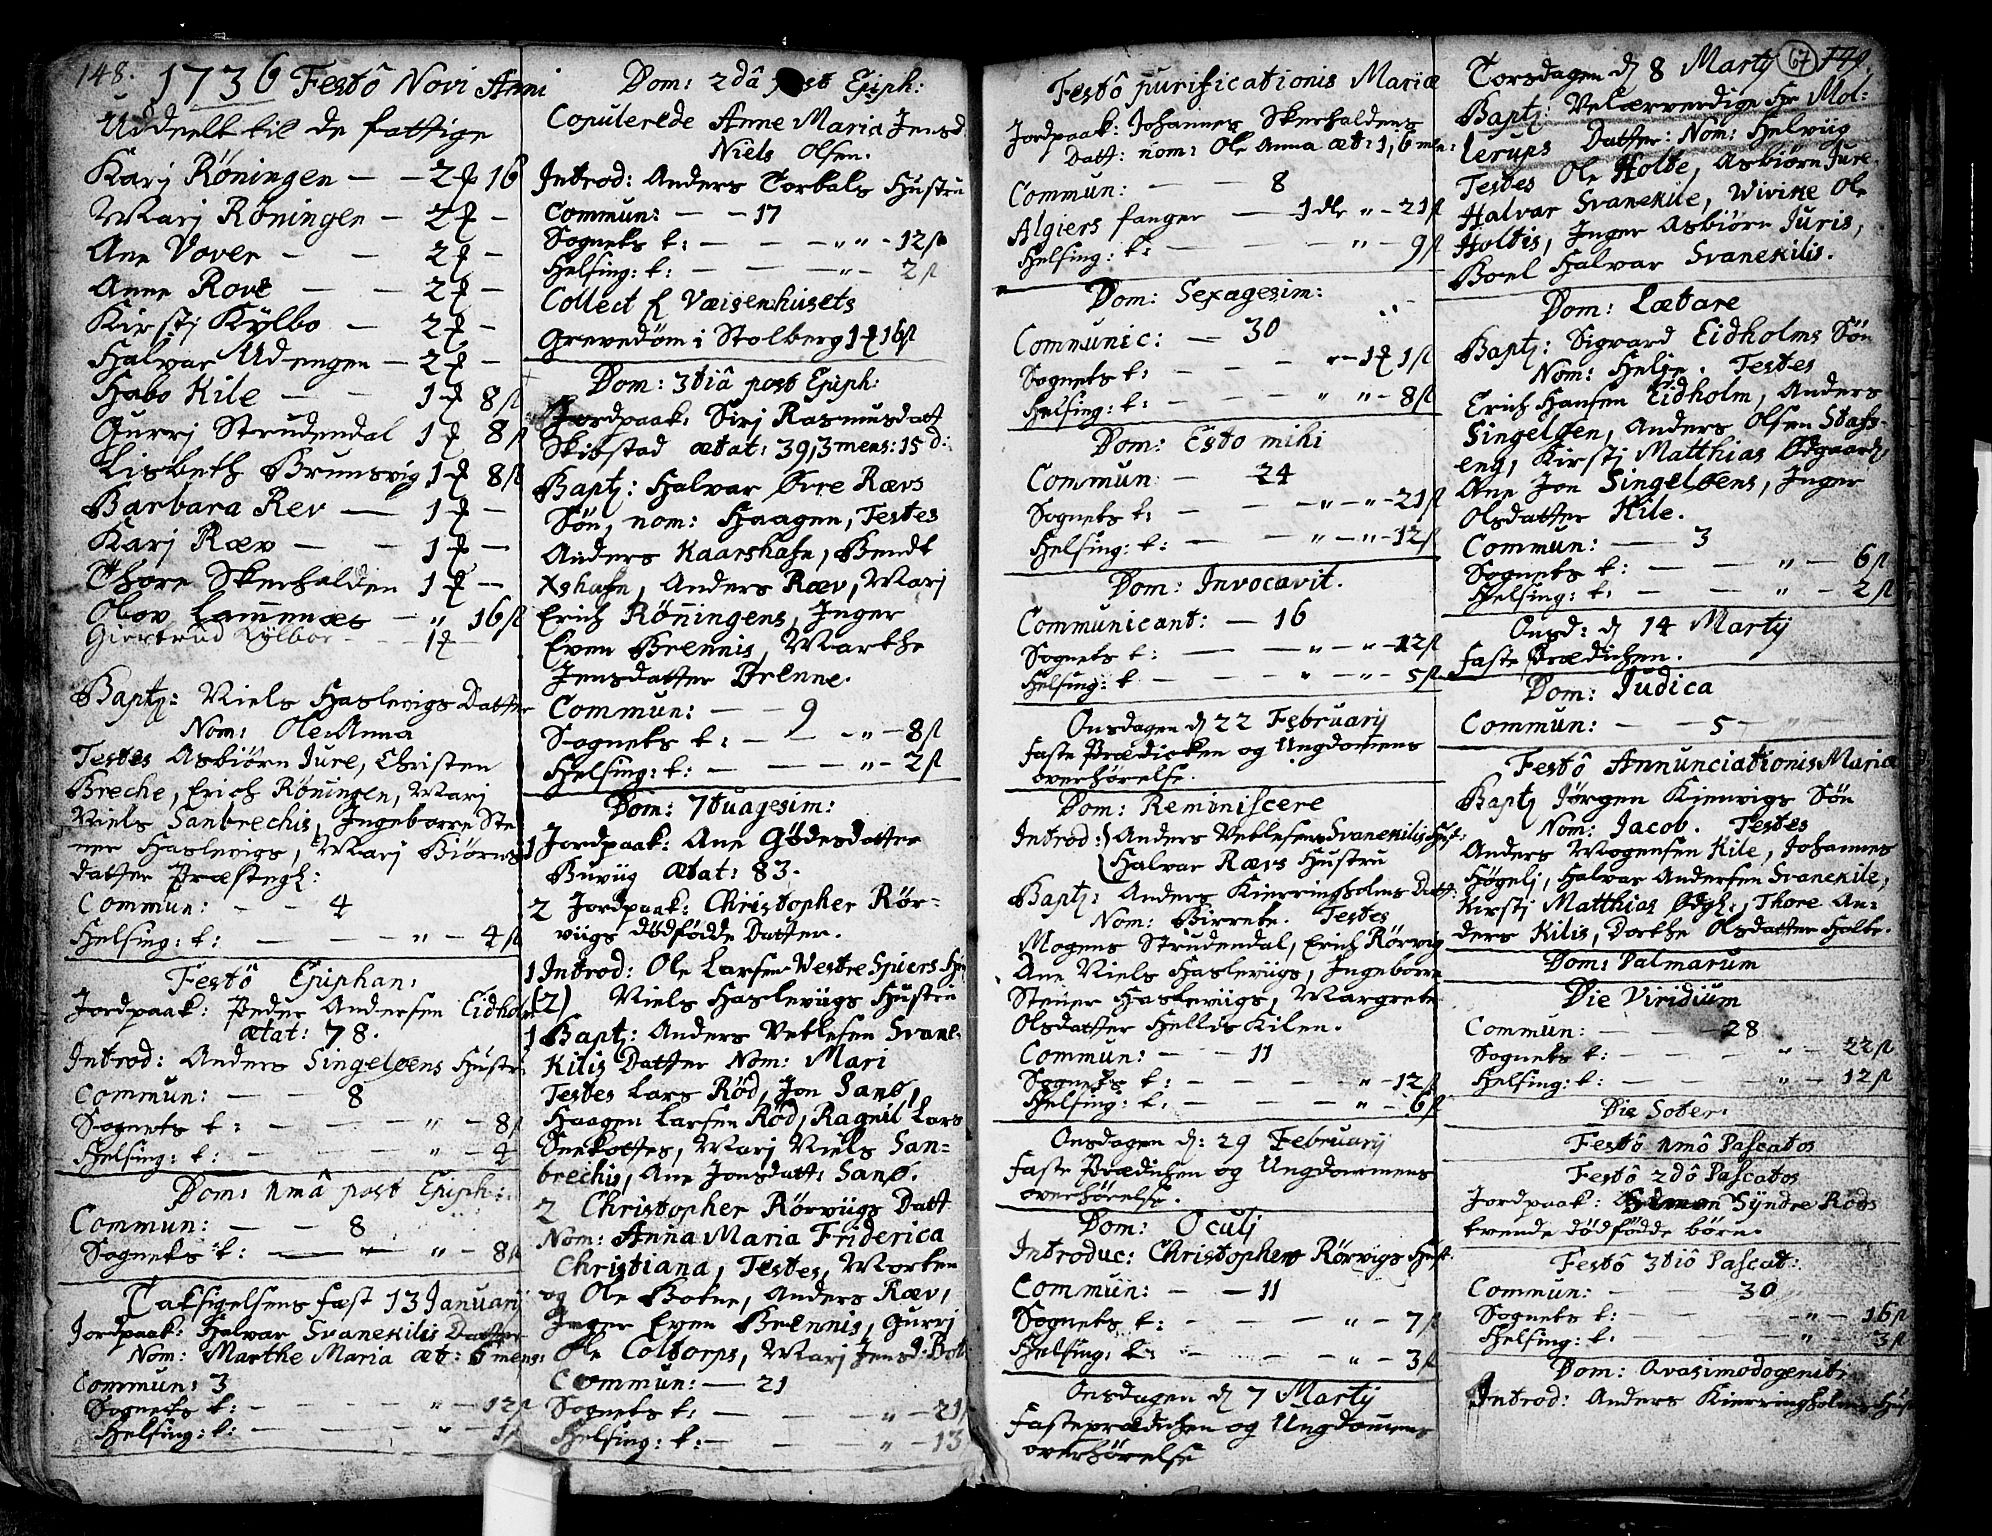 148.
1736 Festô Novi Anni
Uddeelt til de fattige
Karj Röningen — — 2 ꝣ 16
Marj Röningen — 2 ꝣ —
Ane Vover — — 2 ꝣ —
Anne Rove — — 2 ꝣ —
Kirstj Kÿlbo — 2 ꝣ —
Halvar Ud-engen — 2 ꝣ —
Habo Kile — — 1 ꝣ 8 ß
Gurrj Strudendal 1 ꝣ 8 ß
Lisbeth Brunsvig 1 ꝣ 8 ß
Barbara Rev — 1 ꝣ —
Karj Ræv — — 1 ꝣ —
Thore Skerhalden 1 ꝣ —
Olov Lammenæs — „ 16 ß
Giertrud Kÿlboe — 1 ꝣ
Baptz: Niels Haslevigs Datter
Nom: Ole Anna
Testes Asbiörn Jure, Christen
Breche, Erich Röningen, Marj
Niels Sanbrechis, Ingeborre Ste
ner Haslevigs, Marj Biörns
datter Præstegh:
Commun: — — 4
Helsing: t: — — — „ — 4 ß
Festô Epiphan:
Jordpaak: Peder Andersen Eidhol
ætat: 78.
Introd: Anders Singeløens Hustr:
Commun: — — 8
Sognets t: — — — „ — 8 ß
Helsing: t: — — — „ — 4
Dom: 1mâ post Epiph:
Commun: — — 8
Sognets t: — — „ — 8 ß
Taksigelsens fæst 13 Januarij
Jordpaak: Halvar Svanekilis Datter
Nom: Marthe Maria æt: 6 mens:
Commun: 3
Sognets t: — — — „ — 12 ß
Helsing: t: — — — „ —
Dom: 2dâ post Epiph:
Copulerede Anne Maria Jensd
Niels Olsen.
Introd: Anders Torbals Hustru
Commun: — — 17
Sognets t: — — — „ — 12 ß
Helsing: t: — — — „ — 2 ß
Collect f Væisenhusets
Grevedöm i Stolberg 1 ꝣ 16 ß
Dom: 3tiâ post Epiph:
Jordpaak: Sirj Rasmusdatt
Skibstad ætat: 39, 3 mens: 15 d:
Baptz: Halvar Øvre Rævs
Sön, nom: Haagen, Testes
Anders Kaarshafn, Bendt
Xshafn, Anders Ræv, Marj
Erich Röningens, Inger
Even Brennis, Marthe
Jensdatter Brenne.
Commun: — — 9
Sognets t: — — „ — 8 ß
Helsing: t: — — — „ — 2 ß
Dom: 7tuagesim:
1 Jordpaak: Ane Gödesdatter
Buviig ætat: 83.
2 Jordpaak: Christopher Rör-
viigs dödfödde Datter.
1 Introd: Ole Larsen Westre Spiers Hu
(2) Niels Haslevigs Hustru
1 Bapt: Anders Vetlesen Svane-
Kilis Datter Nom: Mari
Testes Lars Röd, Jon Sanö,
Haagen Larsen Röd, Ragnil Lars
Snekottes, Marj Niels San-
brechis, Ane Jonsdatt: Sanö.
2 Christopher Rörviigs Datt
Nom: Anna Maria Friderica
Christiana, Testes, Morten
og Ole Botne, Anders Ræv,
Inger Even Brennis, Gurrj
Ole Coltorps, Marj Jensd: Bot
Commun: — 21
Sognets t: — — — „ — 21
Helsing: t: — — — „ — 13
Festô purificationis Mariæ
Jordpaak: Johannes Skerhaldens
Datt: nom: Ole Anna æt: 1, 6 mens:
Commun: — — 8
Algiers fanger — 1 dlr „ — 21 ß
Helsing: t: — — — „ — 9 ß
Dom: Sexagesim:
Communic: — 30
Sognets t: — — — 1 ꝣ 1 ß
Helsing: t: — — — „ „ — 8 ß
Dom: Esto mihi
Commun: — 24
Sognets t: — — „ — „ — 21 ß
Helsing: t: — — „ — „ — 12 ß
Dom: Invocavit.
Communicant: — 16
Sognets t: — — — „ — „ — 12 ß
Helsing: t — — — „ — „ — 5 ß
Onsdagen d 22 Februarij
faste Prædicken og Ungdomens
overhörelse.
Dom: Reminiscere
Introd: Anders Vetlesen Svanekilis Hust:
Halvar Rævs Hustru
Baptz: Anders Kierringholms Datt:
Nom: Birrete. Testes
Mogens Strudendal, Erich Rörvig
Ane Niels Haslevigs, Ingeborre
Stener Haslevigs, Margrete
Olsdatter Hellis Kilen.
Commun: — — 11
Sognets t: — — — „ — 12 ß
Helsing: t: — — — „ — 6 ß
Onsdagen d: 29 Februarij
faste Prædichen og Ungdommens
overhörelse.
Dom: Oculj
Introduc: Christophers Rörvigs Hust.
Commun: — — 11
Sognets t: — — — „ — 7 ß
Helsing: t: — — — „ — 3 ß
Onsdagen d 7 Martij
fasteprædichen og Ungdomens
overhörelse
67 149
Torsdagen d 8 Martij
Baptz: Velærverdige Hr Mol-
lerups Datter: Nom: Helvig
Testes Ole Holte, Asbiörn Jure,
Halvar Svanekile, Wivike Ole
Holtis, Inger Asbiörn Juris,
Boel Halvar Svanekilis.
Dom: Lætare
Baptz: Sigvard Eidholms Sön
Nom: Helje. Testes
Erich Hansen Eidholm, Anders
Singelöen, Anders Olsen Stafs-
eng, Kirstj Matthias Ødgaard,
Ane Jon Singelöens, Inger
Olsdatter Kile.
Commun: — 3
Sognets t: — — „ — 6 ß
Helsing: t. — — „ — 2 ß
Onsd: d 14 Martij
faste Prædichen.
Dom: Judica
Commun: — — 5
Festô Annunciationis Mariæ
Baptz Jörgen Kienvigs Sön
Nom: Jacob. Testes
Anders Mogensen Kile, Johannes
Högelj, Halvar Andersen Svanekile,
Kirstj Matthias Ødgh:, Thore An-
ders Kilis, Dorthe Olsdatter Holte.
Dom: Palmarum
Die Viridium
Commun: — — 28
Sognets t: — — — „ — 22 ß
Helsing: t: — — — „ — 12 ß
Die Soter:
Festô 1mô Pascatos
Festô 2dô Pascatos
Jordpaak: Simon Syndre Röds
tvende dödfödde börn.
Festô 3tiô Pascat:
Commun: — — 30
Sognets t: — — — „ — 16 ß
Helsing: t. — — — „ — 3 ß
Dom: Qvasimodogeniti
Introd: Anders Kierringholms Hust